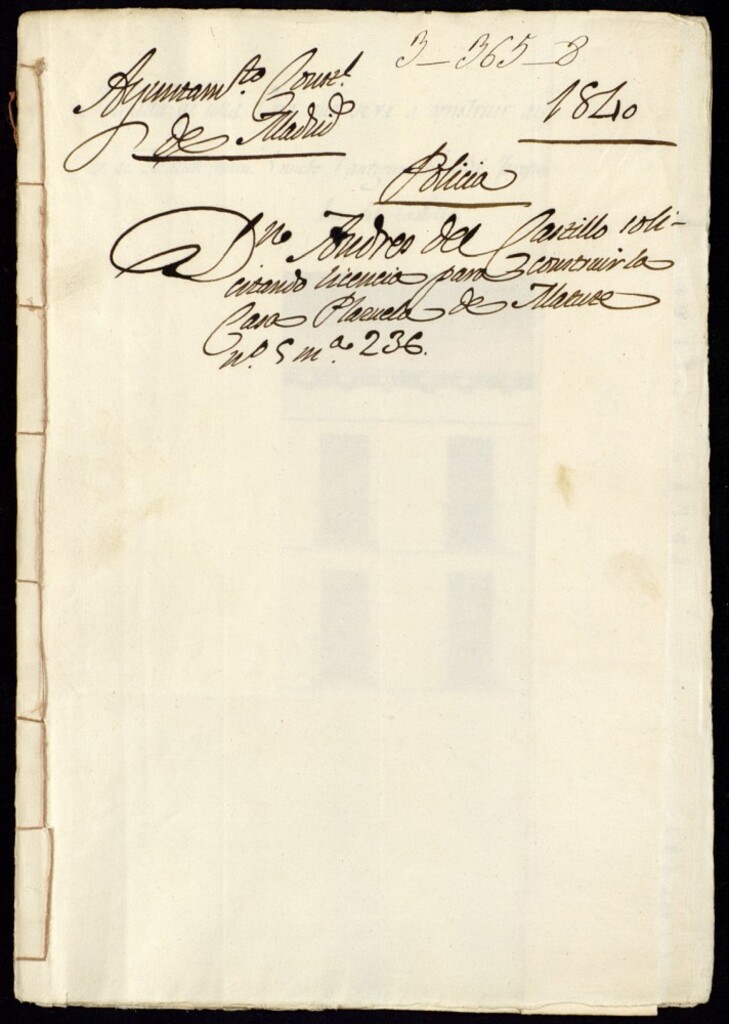 3-365-8
Ayuntam.to Const.l
de Madrid
1840
Policia
Dn. Andres del Castillo soli-
citando licencia para construir la
Casa Plazuela de Matute
nº. 5 m.a 236.